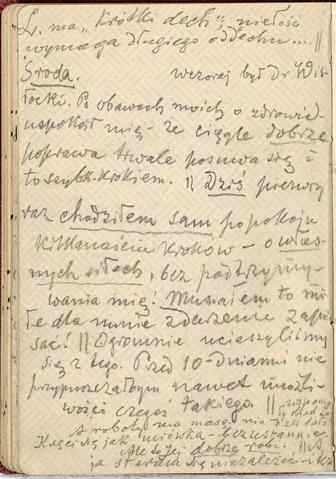 L. ma „krótki dech", miłość
wymaga długiego oddechu... ||
Środa. wczoraj był Dr Wit-
łocki. Po obawach moich o zdrowie
uspokoił mię - że ciągle dobrze
poprawa trwale posuwa się i
to szybk. krokiem. || Dziś pierwszy
raz chodziłem sam po pokoju
kilkanaście kroków - o włas-
nych siłach, bez podtrzymy-
wania mię! Musiałem to mi-
łe dla mnie zdarzenie zapi-
sać! || Ogromnie ucieszyliśmy
się z tego. Przed 10-dniami nie
przypuszczałbym nawet możli-
wości czegoś takiego. ||
A roboty ma masę
Kręci się jak mrówka - bezustannie
Ale to jej dobrze robi. ||
ja staram się niezależeć -